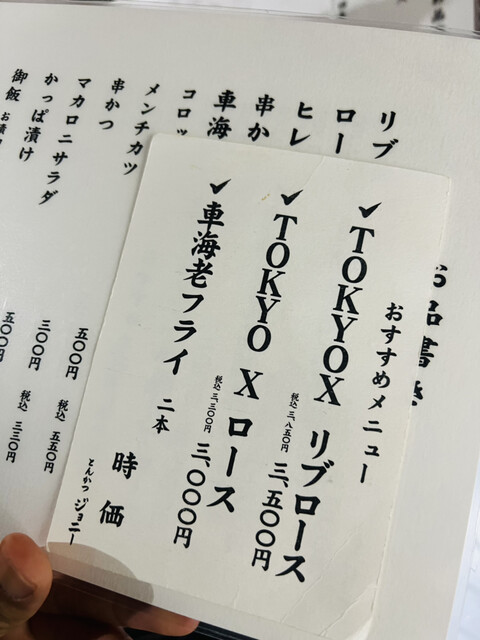 おすすめメニュー
✓TOKYOX リブロース
三、五〇〇円
税込 三、八五〇円
✓TOKYO X ロース
三、〇〇〇円
税込 三、三〇〇円
✓車海老フライ 二本
時価
とんかつ ジョニー
お品書き
リブ
ロー
ヒレ
串か
車海
コロッ
メンチカツ
串かつ
マカロニサラダ
五〇〇円 税込 五五〇円
かっぱ漬け
三〇〇円 税込 三三〇円
御飯 お漬
五〇〇円